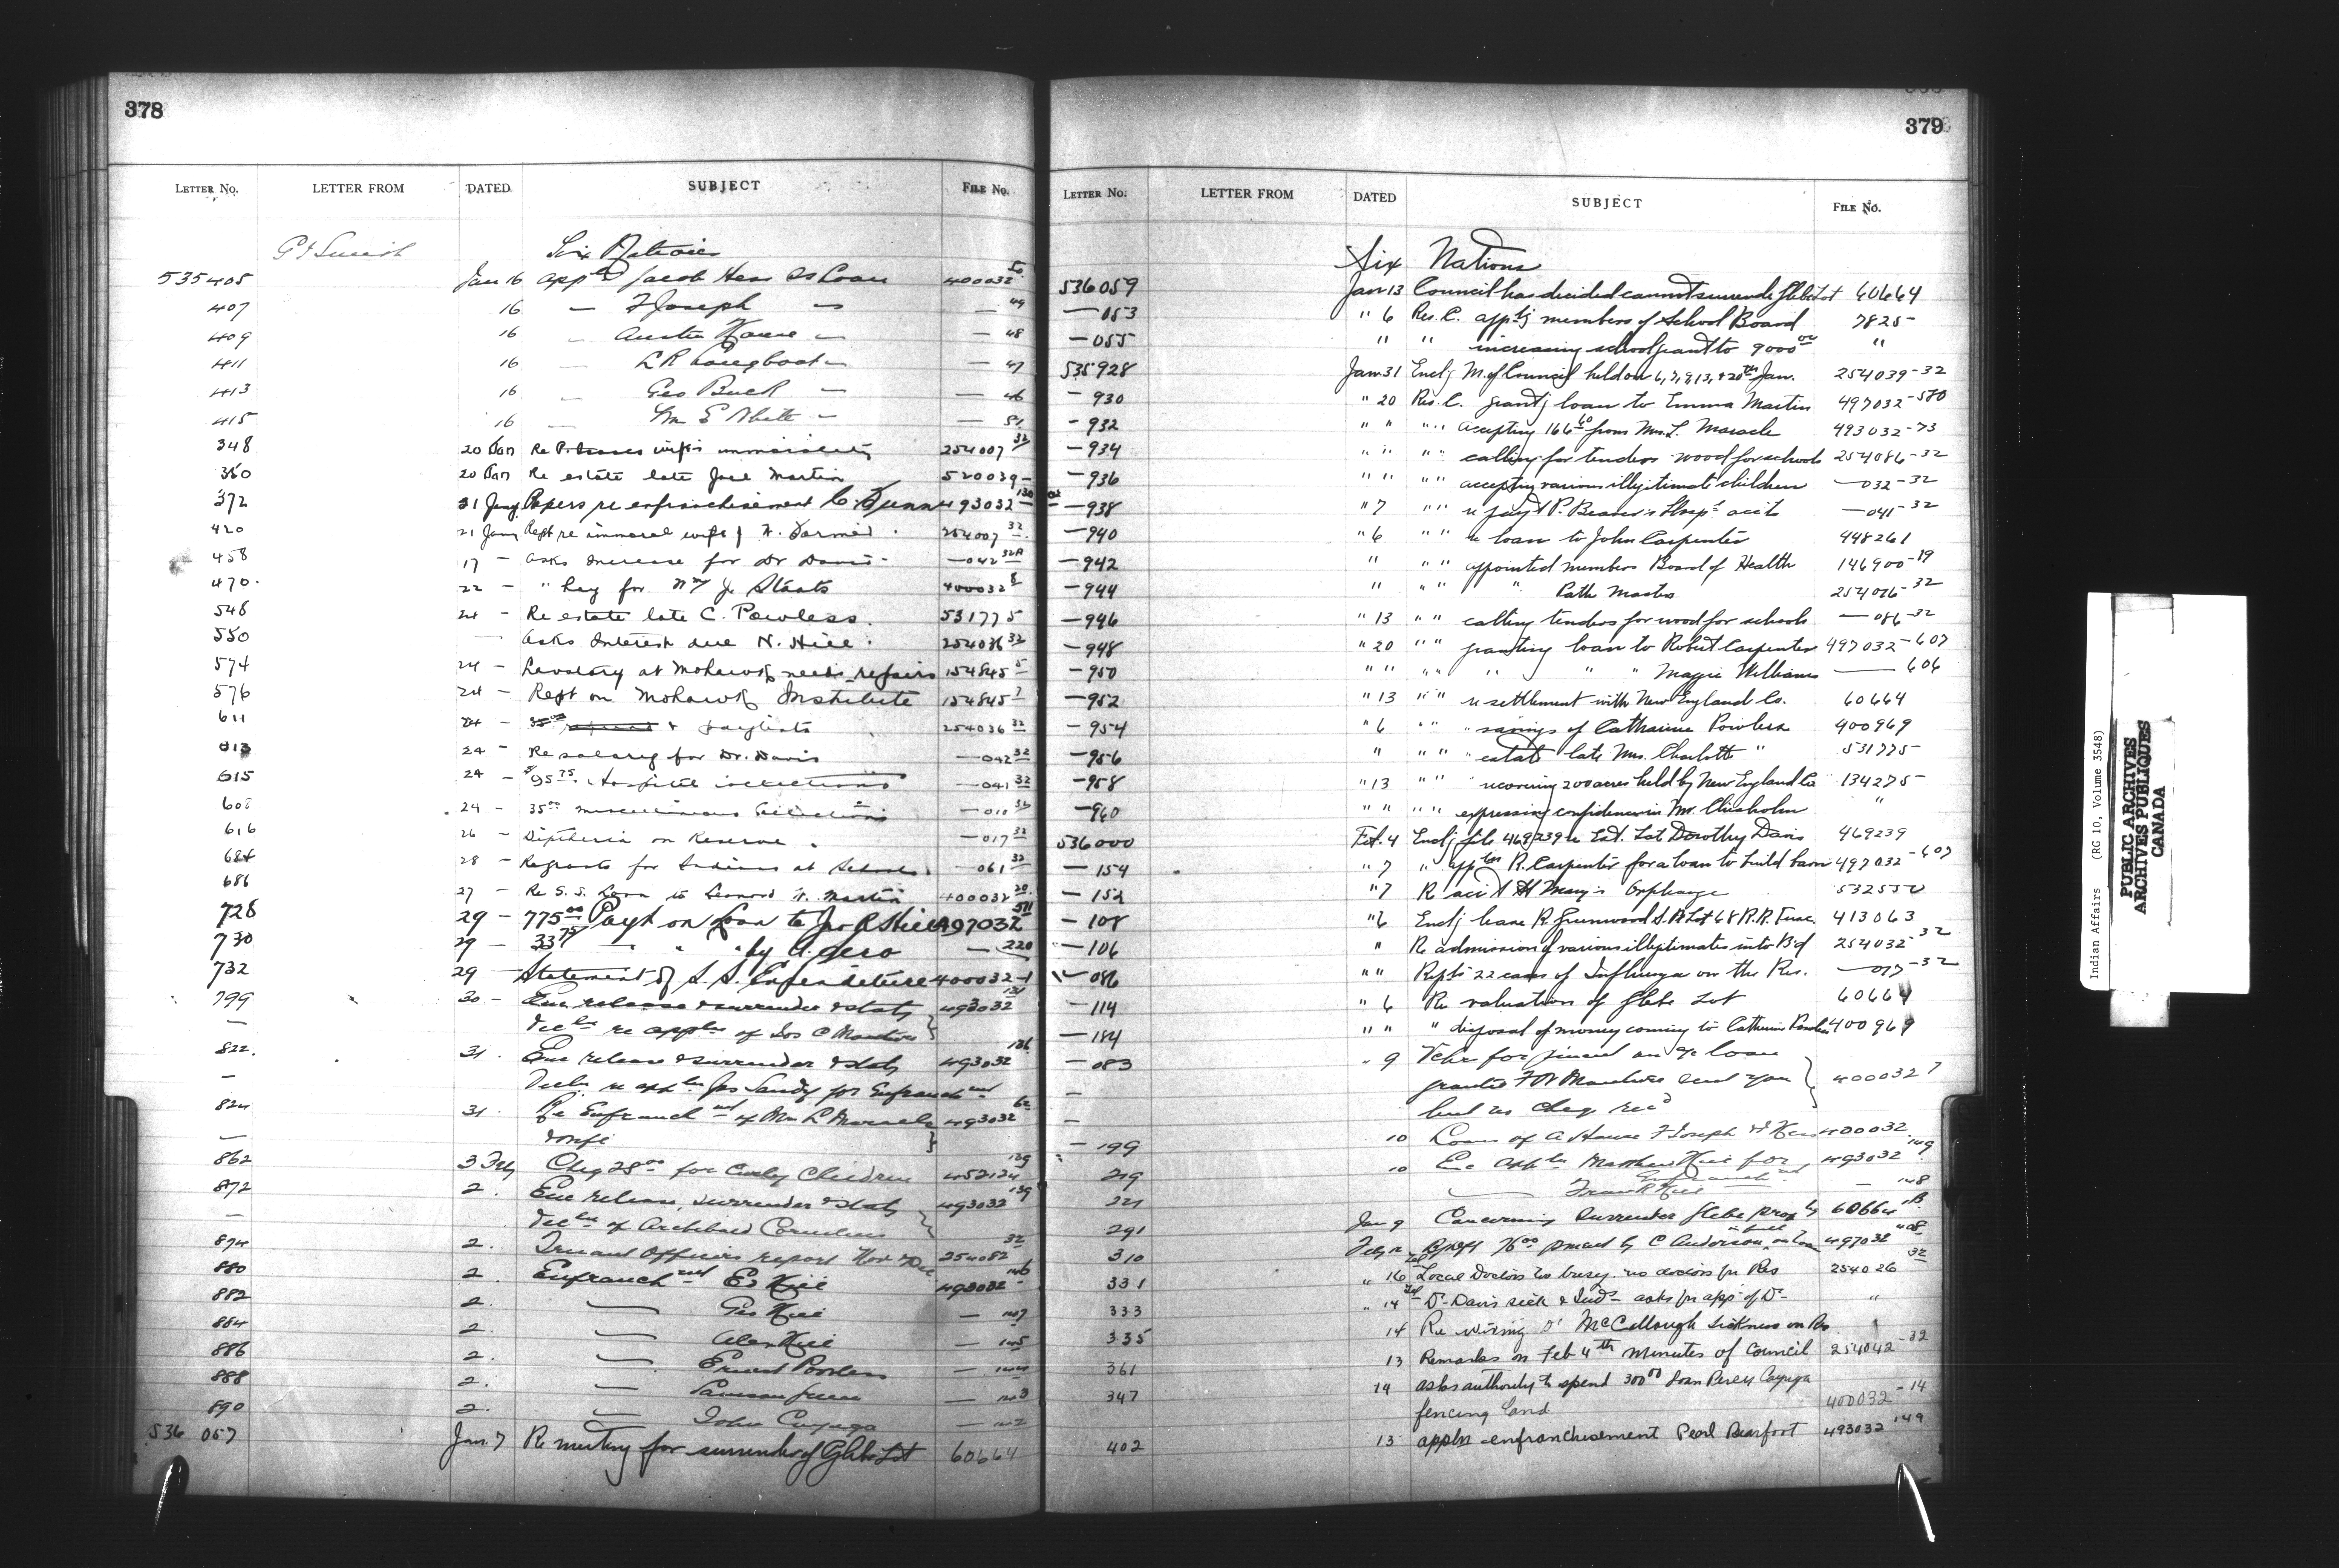 378
LETTER No. LETTER FROM DATED SUBJECT FILE No.
G J Smith Six Nations
535405 Jan 16 appln Jacob Hess SS Loan 400032 50
407 16 — F Joseph — — 49
409 16 — House — — 48
411 16 — L R Longboat — — 47
413 16 — Geo Buck — — 46
415 16 — Wm E White — — 51
348 20 Jan Re wife's immorality 254007 32
350 20 Jan Re estate late Joel Martin 520039 —
372 21 Jany Papers re enfranchisement C. Gunn 493032 130
420 21 Jany Rept re immoral wife of 254007 32
458 17 — Asks Increase for Dr Davis — 042 32A
470 22 — " Pay for J. Staats 400032 8
548 24 — Re estate late C. Powless. 531775
550 — Asks Interest due N. Hill. 254036 32
574 24 — Lavatory at Mohawk needs repairs 154845 5
576 24 — Rept on Mohawk Institute 154845 7
611 24 — & paylists 254036 32
613 24 — Re salary for Dr. Davis — 042 32
615 24 — $95.75 Hospital collections — 041 32
24 — 35.00 miscellaneous Collections — 010 32
616 26 — Diptheria on Reserve. — 017 32
684 28 — Regrants for Indians at Schools. — 061 32
686 27 — Re S.S. Loan to Leonard Martin 400032 20
728 29 — 775.00 Payt on Loan to Hill 497032 511
730 29 — 33.75 — " " by A. Gero — 220
732 29 — Statement of S.S. Expenditure 400032-1
799 30 — Enc release & surrender & staty 493032 131
— declns re appln of Jos C Martin
822. 31. Enc release & surrender & staty 493032 136
— Decln re appln Jas Sandy for Enfranchmt
824 31. Re Enfranchmt of Mr L Maracle 493032 62
— & wife
862 3 Feby Cheq 28.00 for Curley Children 452124
872 2. Enc release, surrender & staty 493032 139
— declns of Archibald Cornelius
874 2. Truant Officers report Nov & Dec 254082 32
880 2. Enfranchmt E. Hill 493032 146
882 2. — Geo Hill — 147
884 2. — Alex Hill — 145
886 2. — Ernest Powless — 144
888 2. — Samson Green — 143
890 2. — John Cayuga — 142
536 057 Jan. 7 Re meeting for surrender of Glebe Lot 60664
379
LETTER No. LETTER FROM DATED SUBJECT FILE No.
Six Nations
536059 Jan 13 Council has decided cannot surrender Glebe Lot 60664
— 053 " 6 Res. C. apptg members of School Board 7825
— 055 " " increasing school grant to 9000.00 "
535928 Jan 31 Enclg M. of Council held on 6, 7, 9, 13, & 20th Jan. 254039-32
— 930 " 20 Res. C. grantg loan to Emma Martin 497032-580
— 932 " " " " Accepting 166.60 from Mrs. L. Maracle 493032-73
— 934 " " " " calling for tenders wood for schools 254086-32
— 936 " " " " accepting various illegitimate children — 032-32
— 938 " 7 " " re payt P. Beaver's Hosp. acct — 041-32
— 940 " 6 " " re loan to John Carpenter 448261
— 942 " " " appointed members Board of Health 146900-19
— 944 " " " " Path Masters 254016-32
— 946 " 13 " " calling tenders for wood for schools — 086-32
— 948 " 20 " " granting loan to Robert Carpenter 497032-607
— 950 " " " " " " " Maggie Williams — 606
— 952 " 13 " " re settlement with New England Co. 60664
— 954 " 6 " " " savings of Catharine Powless 400969
— 956 " " " " estate late Mrs. Charlotte " 531775
— 958 " 13 " " recovering 200 acres held by New England Co 134275
— 960 " " " " expressing confidence in Mr. Chisholm "
536000 Feb. 4 Enclg file 469239 re Est. Late Dorothy Davis 469239
— 154 " 7 " appln R. Carpenter for a loan to build barn 497032-607
— 152 " 7 R acct St Mary's Orphanage 532550
— 108 " 6 Enclg lease R. Greenwood S. Pt Lot 68 R.R. Tusc. 413063
— 106 " Re admission of various illegitimates into Bd 254032-32
— 086 " " Repts 22 cases of Influenza on the Res. — 017-32
— 114 " 6 Re valuation of Glebe Lot 60664
— 184 " " " disposal of money coming to Catherine Powless 400969
— 083 " 9 Vchr for on a/c loan
— granted F W sent you 400032 7
— but no cheq recd
— 199 10 Loans of A. House F Joseph & Hess 400032
219 10 Enc appln Matthew Hill for Enfranchmt 493032 149
221 — Frank Hill — 148
291 Jan 9 Concerning surrender Glebe property 60664 1B
310 Feby 12 76.00 by C Anderson in full on loan 497032 408
331 " 16 Local Doctors too busy. no doctors for Res 254026 32
333 " 14 Dr. Davis sick & Inds asks for app of Dr "
335 14 Re wiring Dr McCullough sickness on Res "
361 13 Remarks on Feb 4th minutes of Council 254042-32
347 14 asks authority to spend 300.00 loan Peren Cayuga
fencing land 400032-14
402 13 appln enfranchisement Pearl Bearfoot 493032 149
Indian Affairs (RG 10, Volume 3548)
PUBLIC ARCHIVES
ARCHIVES PUBLIQUES
CANADA